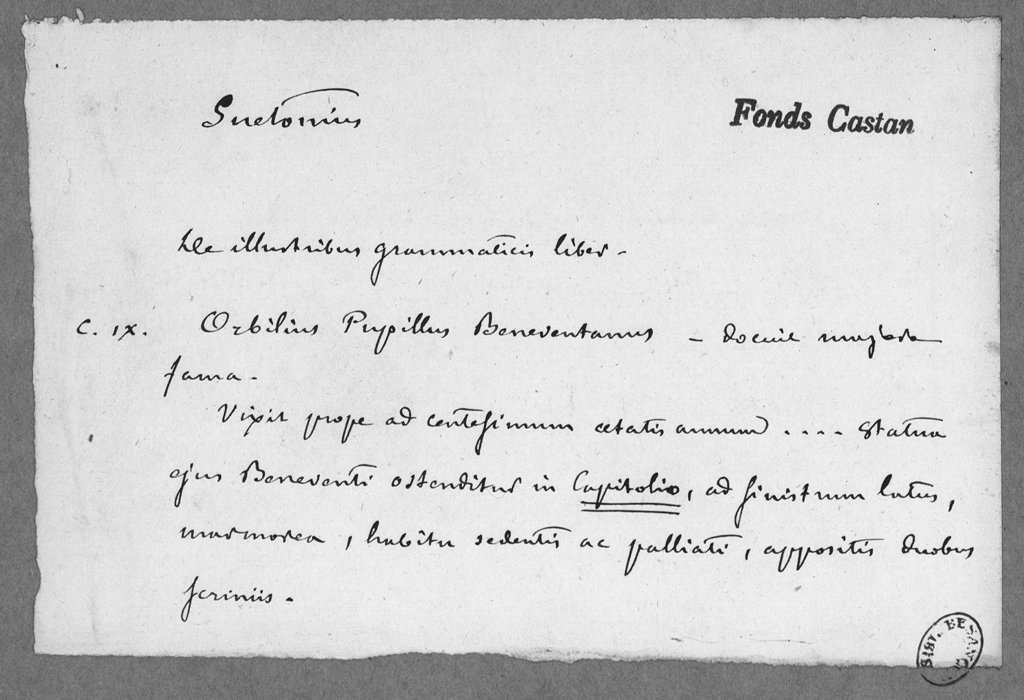 Suetonius
Fonds Castan
De illustribus grammaticis liber -
C. IX. Orbilius Pupillus Beneventanus - docuit majore
fama.
Vixit prope ad centesimum ætatis annum .... Statua
ejus Beneventi ostenditur in Capitolio, ad sinistrum latus,
marmorea, habitu sedentis ac palliati, appositis duobus
scriniis.
BIBL. BESANÇ